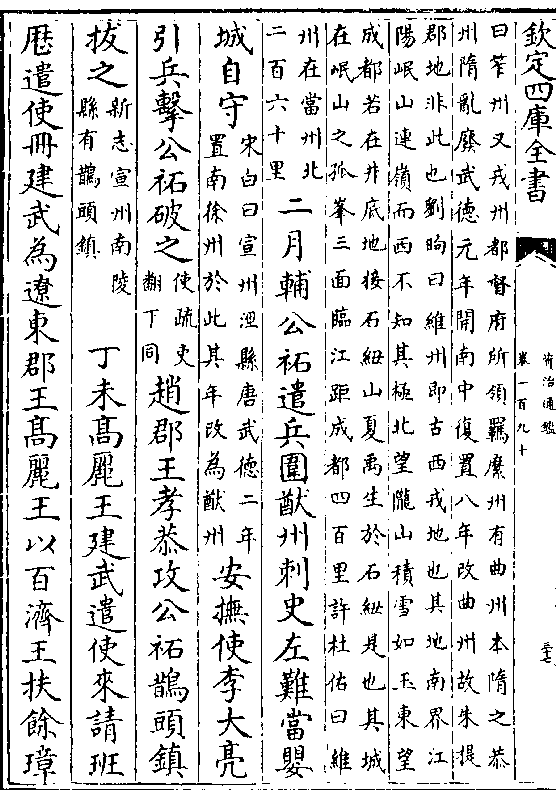 欽定四庫全書
資治通鑑
卷一百九十
曰笮州又戎州都督府所領羈縻州有曲州本隋之恭
州隋亂廢武德元年開南中復置八年改曲州故朱提
郡地非此也劉昫曰維州即古西戎地也其地南界江
陽岷山連嶺而西不知其極北望隴山積雪如玉東望
成都若在井底地接石紐山夏禹生於石紐是也其城
在岷山之孤峯三面臨江距成都四百里許杜佑曰維
州在當州北
二百六十里
二月輔公祏遣兵圍猷州刺史左難當嬰
城自守
宋白曰宣州涇縣唐武德二年
置南徐州於此其年改為猷州
安撫使李大亮
引兵擊公祏破之
使疏吏
翻下同
趙郡王孝恭攻公祏鵲頭鎮
拔之
新志宣州南陵
縣有鵲頭鎮
丁未髙麗王建武遣使來請班
歴遣使冊建武為遼東郡王髙麗王以百濟王扶餘璋